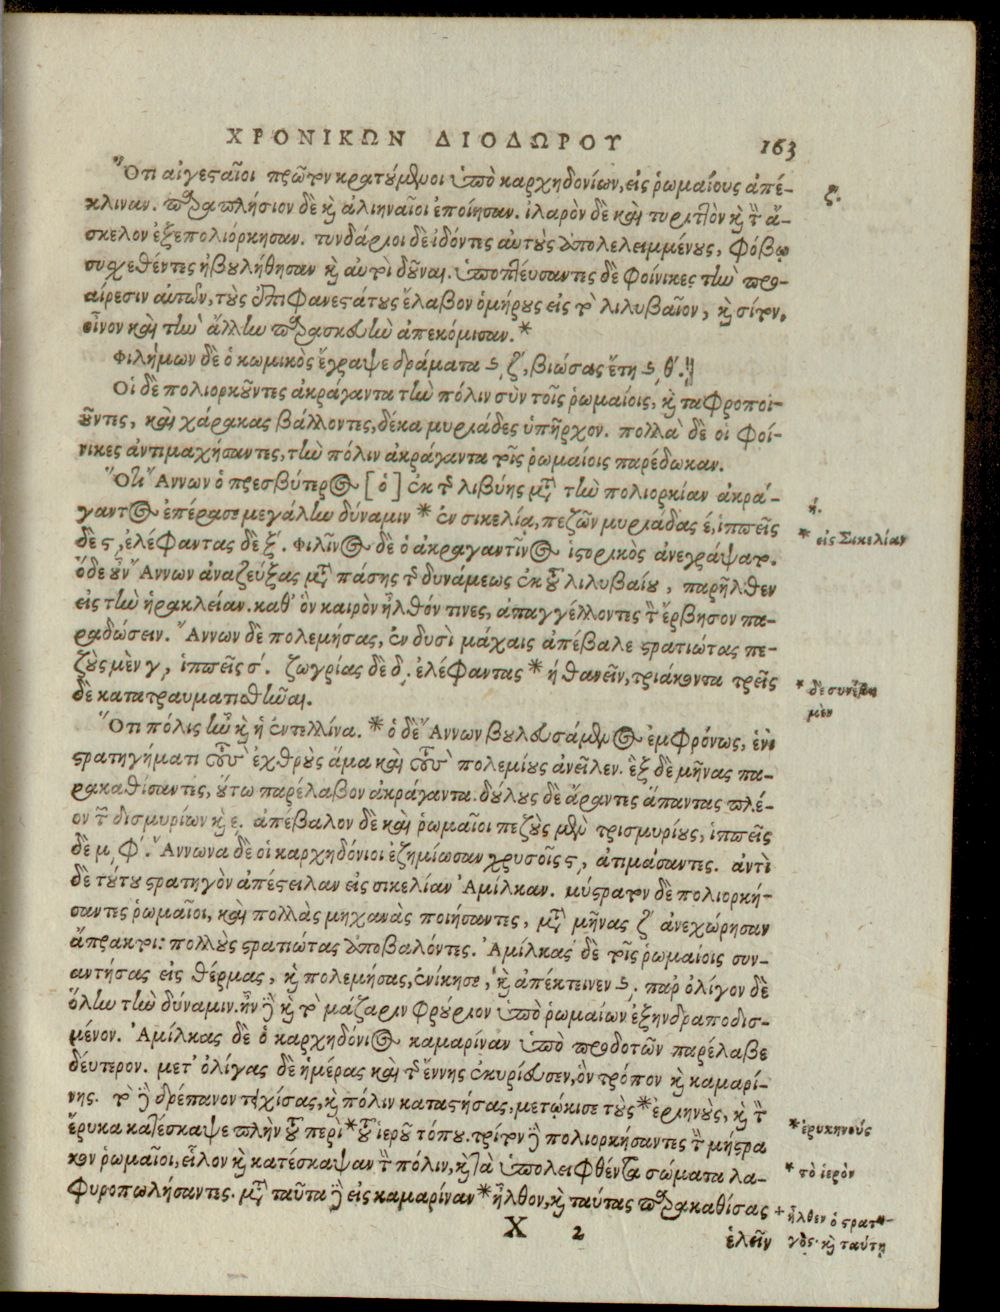 ΧΡΟΝΙΚΩΝ ΔΙΟΔΩΡΟΥ 163
Ὅτι αἰγεσταῖοι πρῶτον κρατούμενοι ὑπὸ καρχηδονίων, εἰς ῥωμαίους ἀπέ-
κλιναν. παραπλήσιον δὲ καὶ ἁλιηναῖοι ἐποίησαν. ἱλαρὸν δὲ καὶ τυριτ]ὸν καὶ τὸν ἄ-
σκελον ἐξεπολιόρκησαν. τυνδάριοι δὲ ἰδόντες αὐτοὺς ἀπολελειμμένους, φόβῳ
συσχεθέντες ἠβουλήθησαν καὶ αὐτοὶ δοῦναι. ὑποπτεύσαντες δὲ φοίνικες τὴν προ-
αίρεσιν αὐτῶν, τοὺς ἐπιφανεστάτους ἔλαβον ὁμήρους εἰς τὸ λιλυβαῖον, καὶ σίτον,
οἶνον καὶ τὴν ἄλλην παρασκευὴν ἀπεκόμισαν.*
Φιλήμων δὲ ὁ κωμικὸς ἔγραψε δράματα ϟζʹ, βιώσας ἔτη ϟθʹ.
Οἱ δὲ πολιορκοῦντες ἀκράγαντα τὴν πόλιν σὺν τοῖς ῥωμαίοις, καὶ ταφροποι-
οῦντες, καὶ χάρακας βάλλοντες, δέκα μυριάδες ὑπῆρχον. πολλὰ δὲ οἱ φοί-
νικες ἀντιμαχήσαντες, τὴν πόλιν ἀκράγαντα τοῖς ῥωμαίοις παρέδωκαν.
Ὅτι Ἄννων ὁ πρεσβύτερος [ὁ] ἐκ τῆς λιβύης μετὰ τὴν πολιορκίαν ἀκρά-
γαντος ἐπέρασε μεγάλην δύναμιν * ἐν σικελίᾳ, πεζῶν μυριάδας έ, ἱππεῖς
δὲ ϛ, ἐλέφαντας δὲ ξʹ. φιλῖνος δὲ ὁ ἀκραγαντῖνος ἱστορικὸς ἀνεγράψατο.
ὅδε οὖν Ἄννων ἀναζεύξας μετὰ πάσης τῆς δυνάμεως ἐκ τοῦ λιλυβαίου, παρῆλθεν
εἰς τὴν ἡρακλείαν. καθ' ὃν καιρὸν ἦλθόν τινες, ἀπαγγέλλοντες τὸν ἔρβησον πα-
ραδώσειν. Ἄννων δὲ πολεμήσας, ἐν δυσὶ μάχαις ἀπέβαλε στρατιώτας πε-
ζοὺς μὲν γ, ἱππεῖς σʹ. ζωγρίας δὲ δ, ἐλέφαντας * ή θανεῖν, τριάκοντα τρεῖς
δὲ κατατραυματισθῆναι.
Ὅτι πόλις ἦν καὶ ἡ ἐντελλίνα. * ὁ δὲ Ἄννων βουλευσάμενος ἐμφρόνως, ἑνὶ
στρατηγήματι τοὺς ἐχθροὺς ἅμα καὶ τοὺς πολεμίους ἀνεῖλεν. ἓξ δὲ μῆνας πα-
ρακαθίσαντες, οὕτω παρέλαβον ἀκράγαντα. δούλους δὲ ἄραντες ἅπαντας πλέ-
ον τῶν δισμυρίων καὶ ε. ἀπέβαλον δὲ καὶ ῥωμαῖοι πεζοὺς μὲν τρισμυρίους, ἱππεῖς
δὲ μ, φʹ. Ἄννωνα δὲ οἱ καρχηδόνιοι ἐζημίωσαν χρυσοῖς ϛ, ἀτιμάσαντες. ἀντὶ
δὲ τούτου στρατηγὸν ἀπέστειλαν εἰς σικελίαν Ἀμίλκαν. μύστρατον δὲ πολιορκή-
σαντες ῥωμαῖοι, καὶ πολλὰς μηχανὰς ποιήσαντες, μετὰ μῆνας ζʹ ἀνεχώρησαν
ἄπρακτοι: πολλοὺς στρατιώτας ἀποβαλόντες. Ἀμίλκας δὲ τοῖς ῥωμαίοις συν-
αντήσας εἰς θέρμας, καὶ πολεμήσας, ἐνίκησε, καὶ ἀπέκτεινεν ϟ, παρ' ὀλίγον δὲ
ὅλην τὴν δύναμιν. ἦν δὲ καὶ τὸ μάζαριν φρούριον ὑπὸ ῥωμαίων ἐξηνδραποδισ-
μένον. Ἀμίλκας δὲ ὁ καρχηδόνιος καμαρίναν ὑπὸ προδοτῶν παρέλαβε
δεύτερον. μετ' ὀλίγας δὲ ἡμέρας καὶ τῆς ἔννης ἐκυρίευσεν, ὃν τρόπον καὶ καμαρί-
νης. τὸ δὲ δρέπανον τειχίσας, καὶ πόλιν καταστήσας, μετῴκισε τοὺς * ἐριηνοὺς, καὶ τὸν
ἔρυκα κατέσκαψε πλὴν τοῦ περὶ * τοῦ ἱεροῦ τόπου. τρίτον δὲ πολιορκήσαντες τὸν μήστρα
τον ῥωμαῖοι, εἷλον καὶ κατέσκαψαν τὴν πόλιν, καὶ τὰ ὑπολειφθέντα σώματα λα-
φυροπωλήσαντες. μετὰ ταῦτα δὲ εἰς καμαρίναν * ἦλθον, καὶ ταύτας παρακαθίσας
Χ 2 ἑλεῖν
ζ.
ή.
* εἰς Σικελίαν
* δὲ συνέβη
μὲν
* ἐρυκηνούς
* τὸ ἱερὸν
+ ἦλθεν ὁ στρατη-
γὸς. καὶ ταύτη